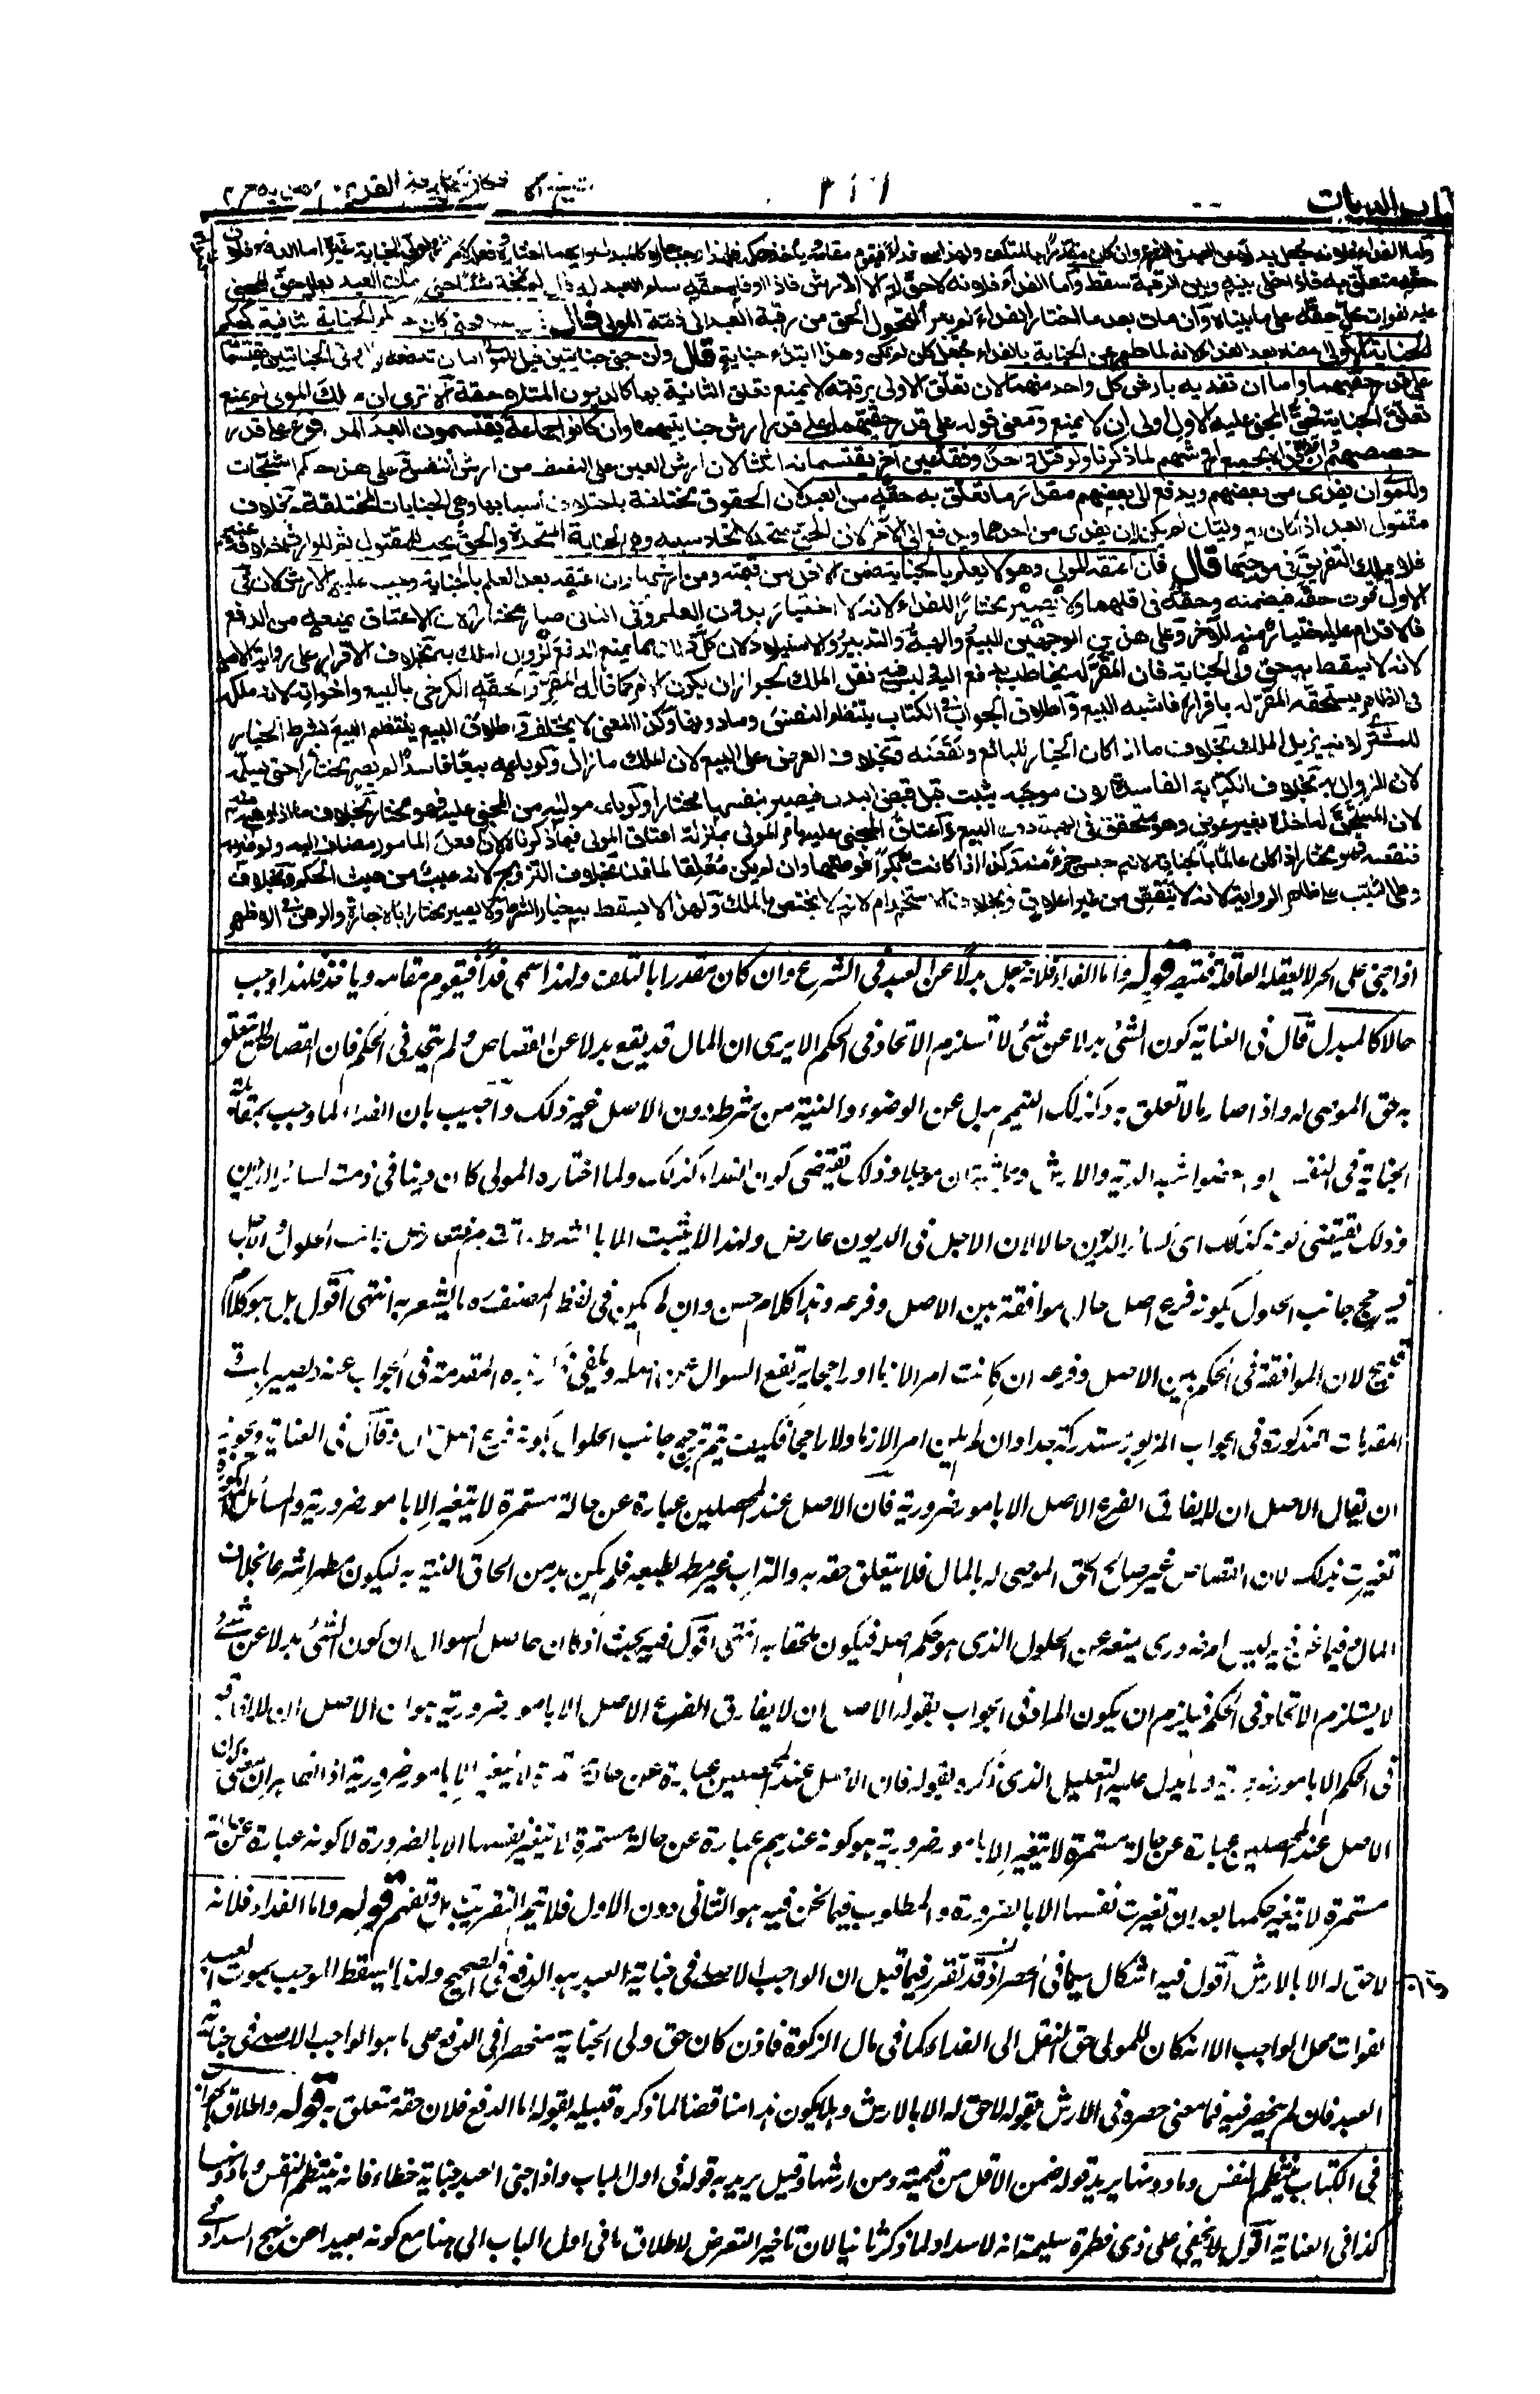 وأما الفداء فلانه جعل بدلا عن العبد فى الشرع وان كان مقدرا بالمتلف ولهذا سمى فداء فيقوم مقامه ويأخذ حكمه فلهذا وجب حالا كالمبدل
حقه متعلق به فاذا خلى بينه وبين الرقبة سقط وأما الفداء فلانه لا حق له الا الارش فاذا اوفاه حقه سلم العبد له
عليه لفوات محل حقه على ما بيناه وان مات بعد ما اختار الفداء لم يبرأ لتحول الحق من رقبة العبد الى ذمة المولى قال
الجناية الاولى معناه بعد الفداء لانه لما طهر عن الجناية بالفداء جعل كأن لم تكن وهذا ابتداء جناية قال وان جنى جنايتين قيل للمولى اما ان تدفعه
على قدر حقيهما واما ان تفديه بارش كل واحد منهما لان تعلق الاولى برقبته لا يمنع تعلق الثانية بها كالديون المتلاحقة ألا ترى ان ملك المولى لم يمنع
تعلق الجناية فحق المجنى عليه الاول اولى ان لا يمنع ومعنى قوله على قدر حقيهما على قدر ارش جنايتيهما وان كانوا جماعة يقتسمون العبد المدفوع على قدر
حصصهم وان فداه فداه بجميع اروشهم لما ذكرنا ولو قتل واحدا وفقأ عين آخر يقتسمانه اثلاثا لان ارش العين على النصف من ارش النفس وعلى هذا حكم الشجات
وللمولى ان يفدى من بعضهم ويدفع الى بعضهم مقدار ما تعلق به حقه من العبد لان الحقوق مختلفة باختلاف اسبابها وهى الجنايات المختلفة بخلاف
مقتول العبد اذا كان له وليان لم يكن له ان يفدى من احدهما ويدفع الى الآخر لان الحق متحد لاتحاد سببه وهى الجناية المتحدة والحق يجب للمقتول ثم للوارث خلافة عنه
فلا يملك التفريق فى موجبها قال فان اعتقه المولى وهو لا يعلم بالجناية ضمن الاقل من قيمته ومن ارشها وان اعتقه بعد العلم بالجناية وجب عليه الارش لان فى
الاول فوت حقه فيضمنه وحقه فى اقلهما ولا يصير مختارا للفداء لانه لا اختيار بدون العلم وفى الثانى صار مختارا لان الاعتاق يمنعه من الدفع
فالاقدام عليه اختيار منه للآخر وعلى هذين الوجهين البيع والهبة والتدبير والاستيلاد لان كل ذلك مما يمنع الدفع لزوال الملك به بخلاف الاقرار على رواية الاصل
لانه لا يسقط به حق ولى الجناية فان المقر له يخاطب بالدفع اليه وليس فيه نقل الملك لجواز ان يكون الامر كما قاله المقر والحقه الكرخى بالبيع واخواته لانه ملكه
فى الظاهر فيستحقه المقر له باقراره فاشبه البيع واطلاق الجواب فى الكتاب ينتظم النفس وما دونها وكذا المعنى لا يختلف واطلاق البيع ينتظم البيع بشرط الخيار
للمشترى لانه يزيل الملك بخلاف ما اذا كان الخيار للبائع ونقضه وبخلاف العرض على البيع لان الملك ما زال ولو باعه بيعا فاسدا لم يصر مختارا حتى يسلمه
لان الزوال به بخلاف الكتابة الفاسدة لان موجبه يثبت قبل قبض البدل فيصير بنفسها مختارا ولو باعه مولاه من المجنى عليه فهو مختار بخلاف ما اذا وهبه منه
لان المستحق له اخذه بغير عوض وهو متحقق فى الهبة دون البيع واعتاق المجنى عليه بأمر المولى بمنزلة اعتاق المولى فيما ذكرناه لان فعل المأمور مضاف اليه ولو ضربه
فنقصه فهو مختار اذا كان عالما بالجناية لانه حبس جزءا منه وكذا اذا كانت بكرا فوطئها وان لم يكن معلقا لما قلنا بخلاف التزويج لانه عيب من حيث الحكم وبخلاف
وطى الثيب على ظاهر الرواية لانه لا ينقص من غير اعلاق وبخلاف الاستخدام لانه لا يختص بالملك ولهذا لا يسقط به خيار الشرط ولا يصير مختارا بالاجارة والرهن فى الاظهر
اذا جنى على الحر لا يعقله العاقلة فتنبه قوله واما الفداء فلانه جعل بدلا عن العبد فى الشرع وان كان مقدرا بالتلف ولهذا سمى فداء فيقوم مقامه وياخذ فلهذا وجب
حالا كالمبدل قال فى العناية كون الشئ بدلا عن شئ لا تسلزم الاتحاد فى الحكم الا يرى ان المال قد يقع بدلا عن القصاص ولم يتحد فى الحكم فان القصاص لا يتعلق
به حق الموصى له واذا صار مالا تعلق به وكذلك التيمم بدل عن الوضوء والنية من شرطه دون الاصل غير ذلك واجيب بان الفداء لما وجب بمقابلة
الجناية فى النفس او بعضو اشبه الدية والارش وذلك تقتضى كون الفداء كذلك ولما اختاره المولى كان دينا فى ذمته كسائر الديون
وذلك يقتضى كونه كذلك اى كسائر الديون حالا لان الاجل فى الديون عارض ولهذا لا يثبت الا بالشرط
فيرجح جانب الحلول بكونه فرع اصل حال موافقة بين الاصل وفرعه وهذا كلام حسن وان لم يكن فى لفظ المصنف ما يشعر به انتهى اقول بل هو كلام
قبيح لان الموافقة فى الحكم بين الاصل وفرعه ان كانت امرا لازما او راجحا يرتفع السوال ويكفى هذه المقدمة فى الجواب عنه ويصير باقى
المقدمات المذكورة فى الجواب المزبور مستدركة جدا وان لم يكن امرا لازما ولا راجحا فكيف يتم ترجيح جانب الحلول بكونه فرع اصل حال وقال فى العناية ويجوز
ان يقال الاصل ان لا يفارق الفرع الاصل الا بامور ضرورية فان الاصل عند المحصلين عبارة عن حالة مستمرة لا يتغير الا بامور ضرورية والمسائل المذكورة
تغيرت بذلك لان القصاص غير صالح لحق الموصى له بالمال فلا يتعلق حقه به والتراب غير مطهر لطبعه فلم يكن بد من الحاق النية به ليكون مطهرا شرعا بخلاف
المال وفيما نحن فيه ليس امر ضرورى يمنعه عن الحلول الذى هو حكم اصله فيكون ملحقا به انتهى اقول فيه بحث اذ كان حاصل السوال ان كون الشئ بدلا عن شئ
لا يستلزم الاتحاد فى الحكم فيلزم ان يكون المراد فى الجواب بقوله الاصل ان لا يفارق الفرع الاصل الا بامور ضرورية هو ان الاصل ان لا يفارقه
فى الحكم الا بامور ضرورية ولا يدل عليه التعليل الذى ذكره بقوله فان الاصل عند المحصلين عبارة عن حالة مستمرة لا يتغير الا بامور ضرورية اذ الظاهر ان معنى كون
الاصل عند المحصلين عبارة عن حالة مستمرة لا يتغير الا بامور ضرورية هو كونه عندهم عبارة عن حالة مستمرة لا يتغير بنفسها الا بالضرورة لا كونه عبارة عن حالة
مستمرة لا يتغير حكمها بعد ان تغيرت نفسها الا بالضرورة والمطلوب فيما نحن فيه هو الثانى دون الاول فلا يتم التقريب تامل تفهم قوله واما الفداء فلانه
لا حق له الا بالارش اقول فيه اشكال سيما فى الحصر اذ قد تقرر فيما قبل ان الواجب الاصلى فى جناية العبد هو الدفع فى الصحيح ولهذا يسقط الموجب بموت العبد
لفوات محل الواجب الا انه كان للمولى حق النقل الى الفداء كما فى مال الزكوة فاذن كان حق ولى الجناية منحصرا فى الدفع على ما هو الواجب الاصلى فى جناية
العبد فان لم ينحصر فيه فما معنى حصره فى الارش بقوله لا حق له الا بالارش وهلا يكون هذا مناقضا لما ذكره قبيله بقوله اما الدفع فلان حقه متعلق به قوله واطلاق الجواب
فى الكتاب ينتظم النفس وما دونها يريد قوله ضمن الاقل من قيمته ومن ارشها وقيل يريد به قوله فى اول الباب واذا جنى العبد جناية خطاء فانه ينتظم النفس وما دونها
كذا فى العناية اقول لا يخفى على ذى فطرة سليمة انه لا سداد لما ذكر ثانيا لان تاخير التعرض لاطلاق ما فى اول الباب الى هنا مع كونه بعيدا عن نهج السداد